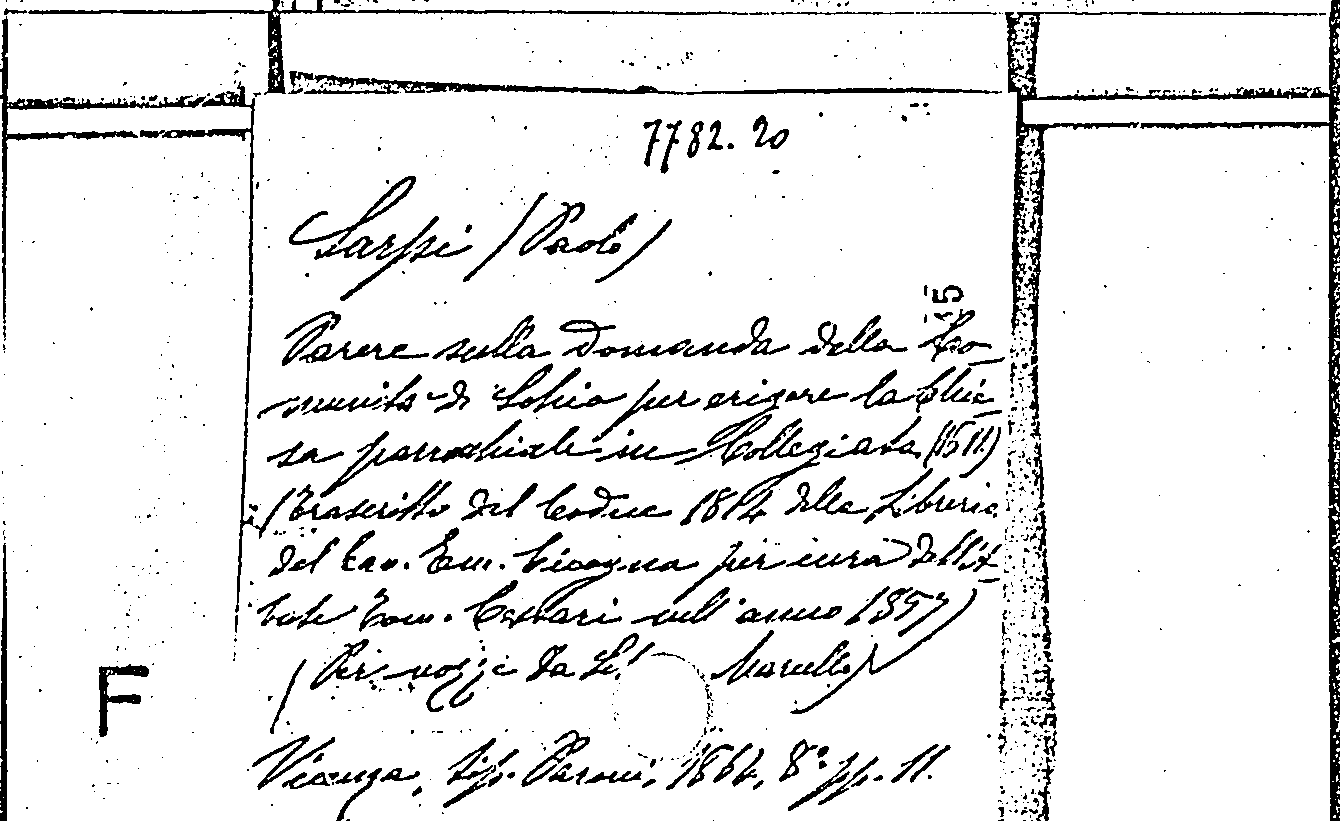 7782. 20
Sarpi (Paolo)
15
Parere sulla Domanda della Co-
munità di Schio per erigere la Chie-
sa parrochiale in Collegiata (1611)
(Trascritto dal Codice 1814 della Libreria
del Cav. Em. Cicogna per cura dell'A-
bate Tom. nell'anno 1857)
(Per nozze da Marcello)
F
Vicenza, tip. Paroni, 8° pp. 11.